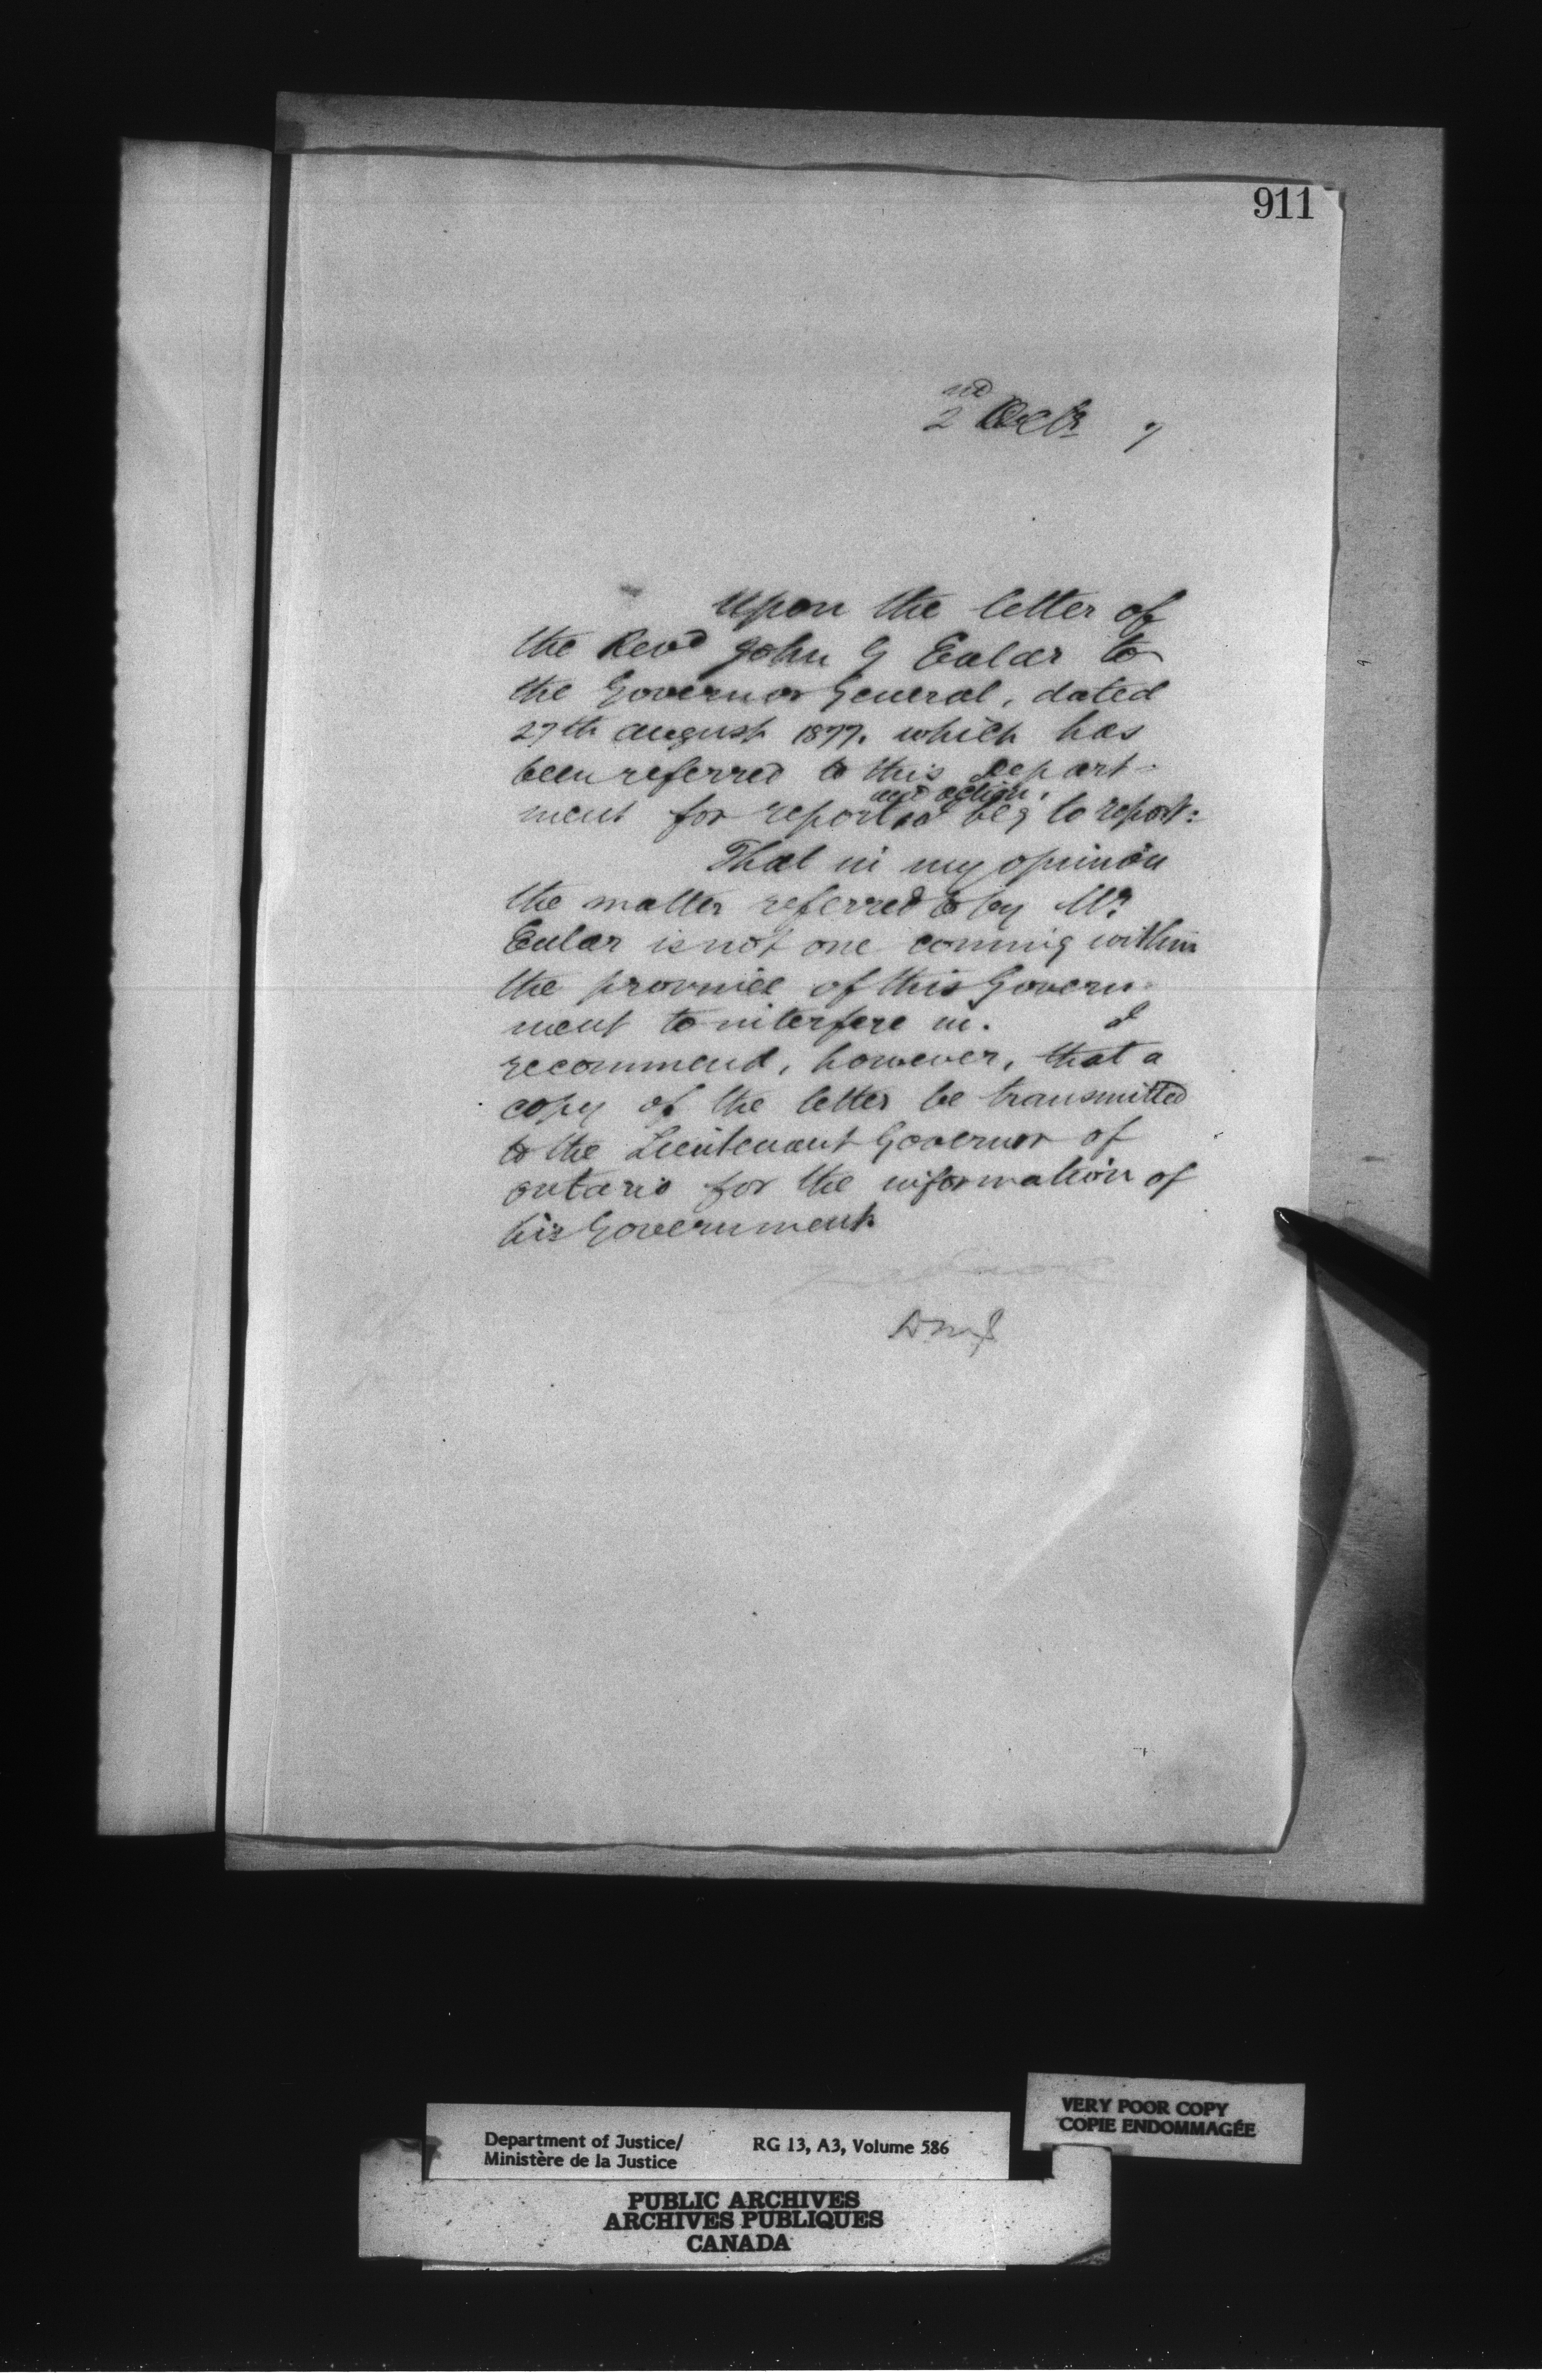 911
2nd Octr 7
Upon the letter of
the Revd John G Eular to
the Governor General, dated
27th August 1877. which has
been referred to this Depart-
and action.
ment for report I beg to report:
That in my opinion
the matter referred to by Mr
Eular is not one coming within
the province of this Govern-
ment to interfere in. I
recommend, however, that a
copy of the letter be transmitted
to the Lieutenant Governor of
Ontario for the information of
his Government.
DMJ
VERY POOR COPY
COPIE ENDOMMAGÉE
Department of Justice/ RG 13, A3, Volume 586
Ministère de la Justice
PUBLIC ARCHIVES
ARCHIVES PUBLIQUES
CANADA